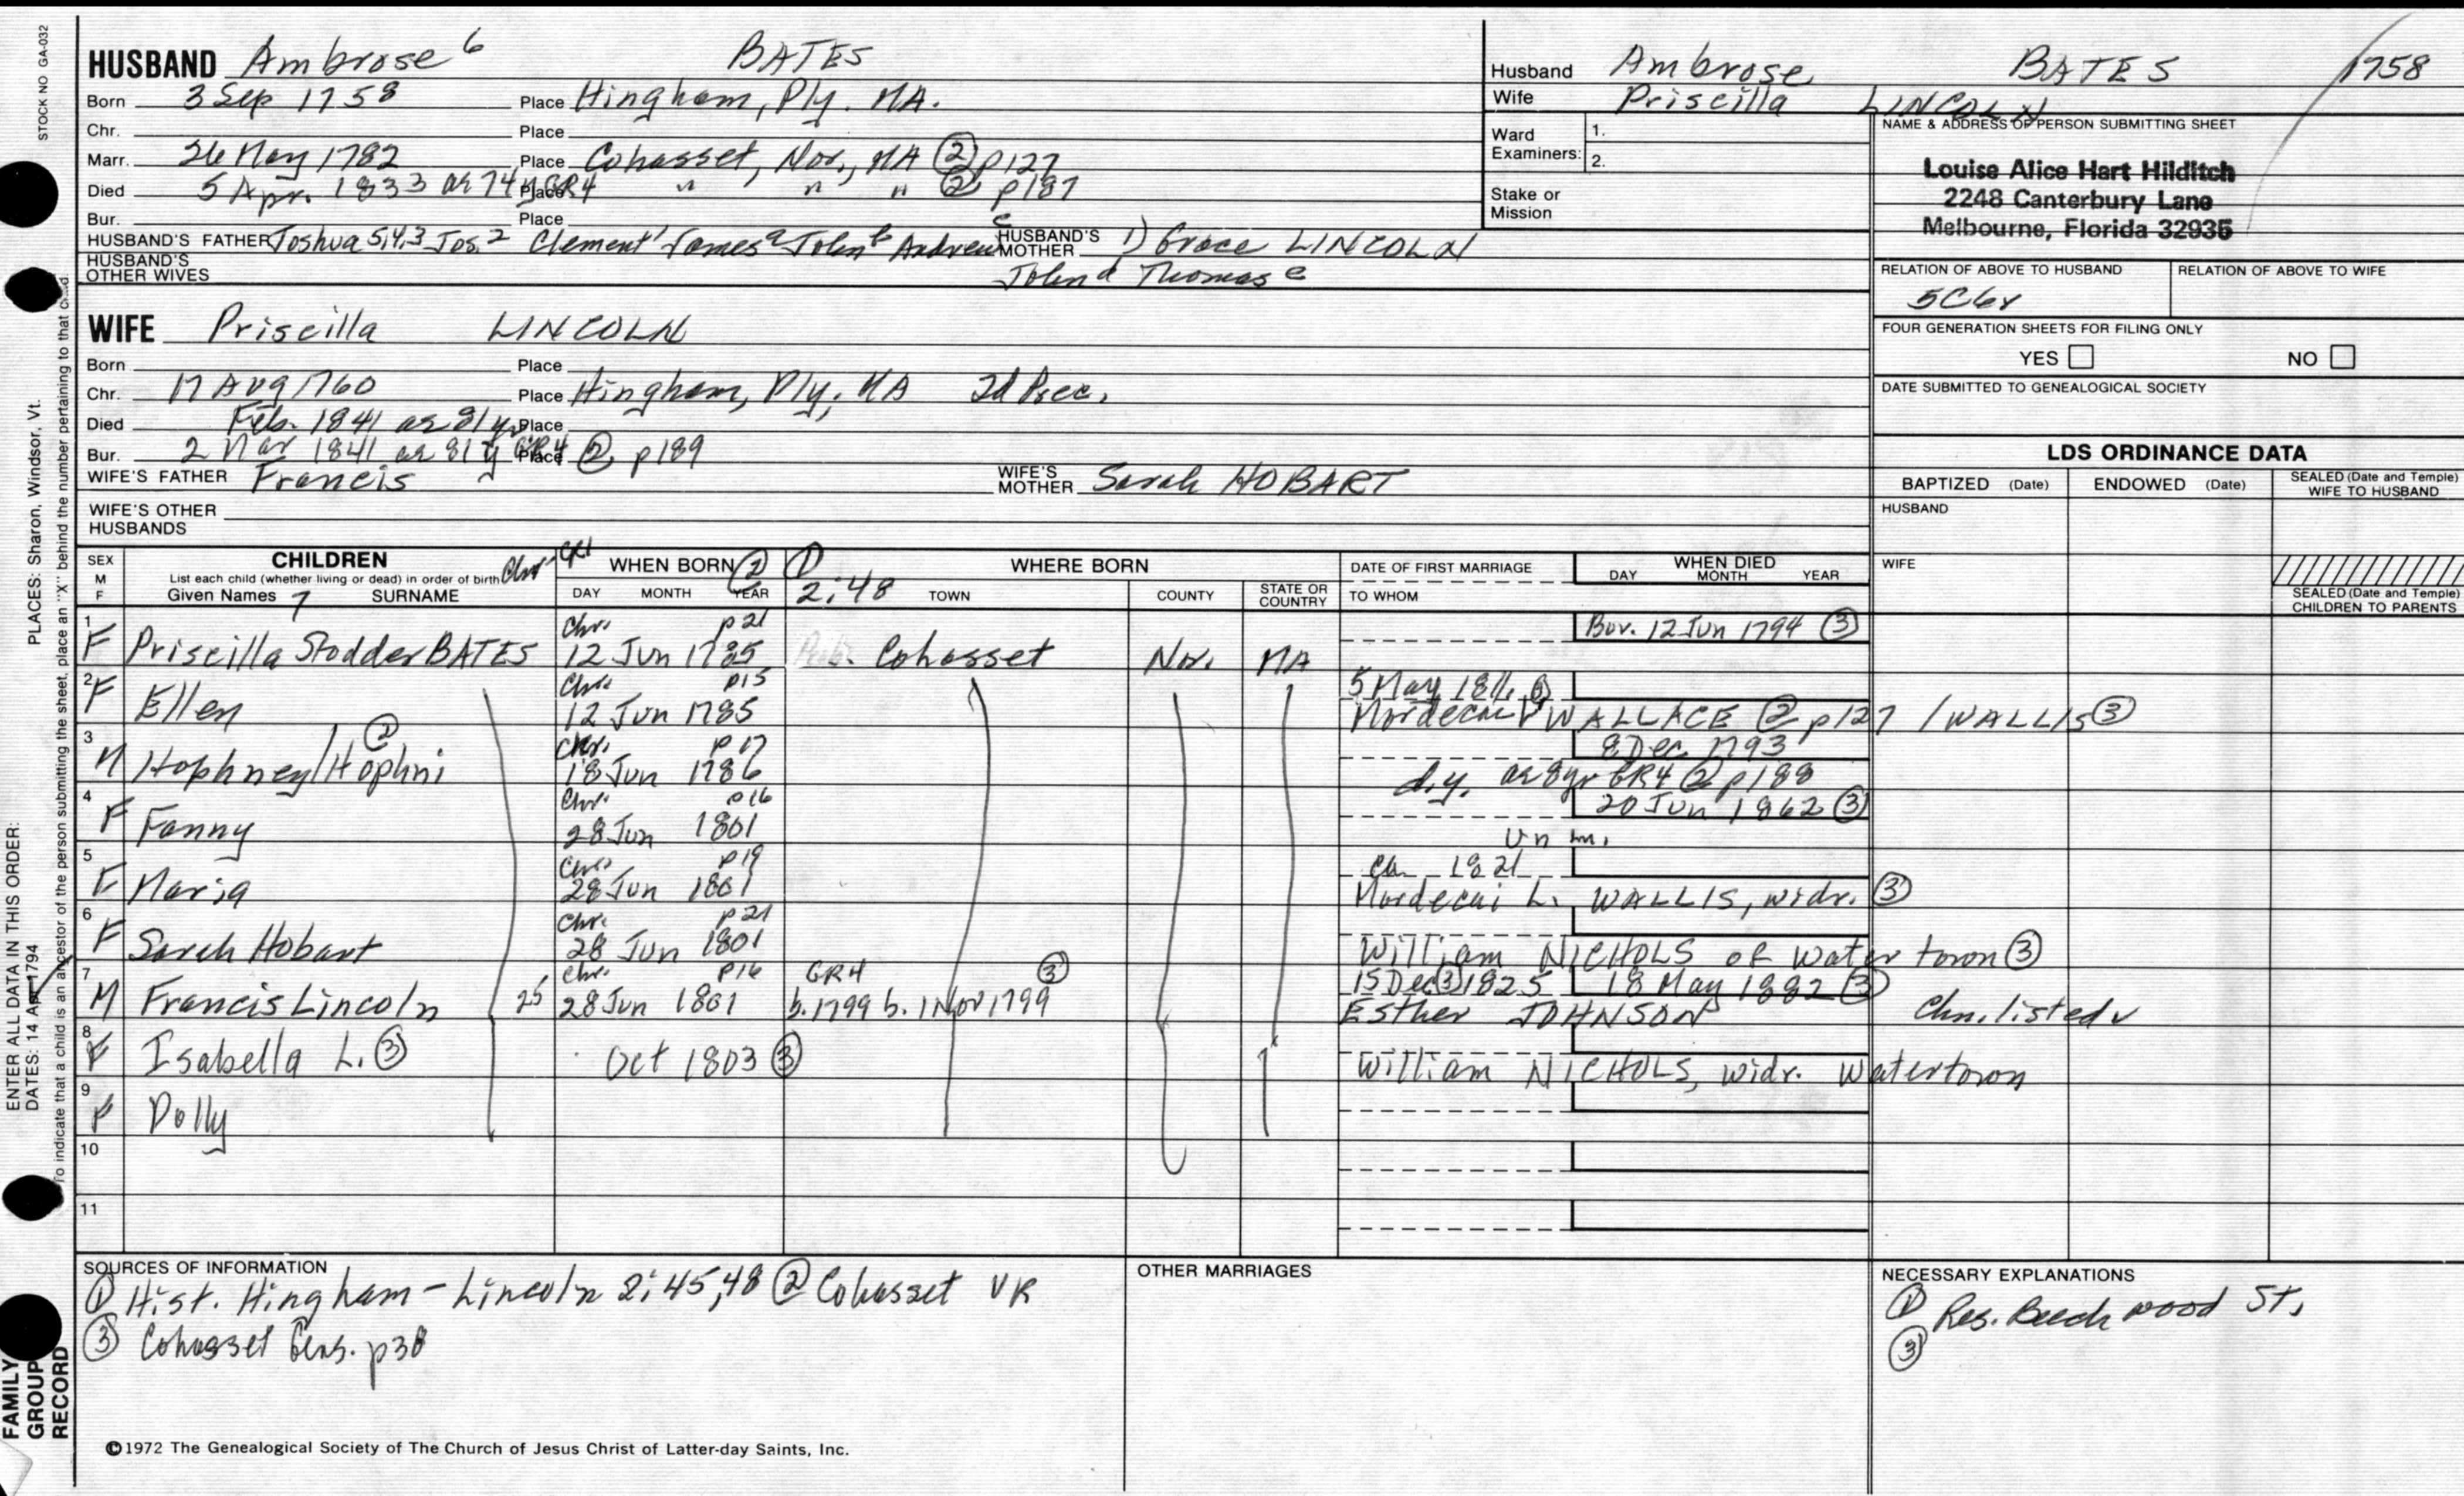 STOCK NO GA-032
HUSBAND Ambrose 6 BATES
Born 3 Sep 1758 Place Hingham, Ply. MA.
Chr. Place
Marr. 26 May 1782 Place Cohasset, Nor., MA ② p127
Died 5 Apr. 1833 ae 74 y GR4 Place " " " ② p187
Bur. Place
HUSBAND'S FATHER Joshua 5,4,3 Jos.2 Clement1 James a John b Andrew c HUSBAND'S MOTHER 1) Grace LINCOLN
HUSBAND'S OTHER WIVES John d Thomas e
Husband Ambrose BATES 1758
Wife Priscilla LINCOLN
Ward Examiners: 1.
2.
Stake or Mission
NAME & ADDRESS OF PERSON SUBMITTING SHEET
Louise Alice Hart Hilditch
2248 Canterbury Lane
Melbourne, Florida 32935
RELATION OF ABOVE TO HUSBAND RELATION OF ABOVE TO WIFE
5C6r
FOUR GENERATION SHEETS FOR FILING ONLY
YES NO
DATE SUBMITTED TO GENEALOGICAL SOCIETY
WIFE Priscilla LINCOLN
Born Place
Chr. 17 Aug 1760 Place Hingham, Ply, MA 2d Prec.
Died Feb. 1841 ae 81 y Place
Bur. 2 Mar 1841 ae 81 y GR4 Place ② p189
WIFE'S FATHER Francis WIFE'S MOTHER Sarah HOBART
WIFE'S OTHER HUSBANDS
LDS ORDINANCE DATA
BAPTIZED (Date) ENDOWED (Date) SEALED (Date and Temple) WIFE TO HUSBAND
HUSBAND
WIFE
SEALED (Date and Temple) CHILDREN TO PARENTS
SEX M F
CHILDREN
List each child (whether living or dead) in order of birth
Given Names 7 SURNAME
WHEN BORN ② ①
DAY MONTH YEAR
WHERE BORN
2:48 TOWN COUNTY STATE OR COUNTRY
DATE OF FIRST MARRIAGE
TO WHOM
WHEN DIED
DAY MONTH YEAR
1 Chr. p21 Bur. 12 Jun 1794 ③
F Priscilla Stodder BATES 12 Jun 1785 Cohasset Nor. MA
2 Chr. p15 5 May 1811
F Ellen 12 Jun 1785 Mordecai WALLACE ② p127 / WALLIS ③
3 Chr. p17 8 Dec 1793
M Hophney/Hophni ② 18 Jun 1786 d.y. ae 8yr GR4 ② p188
4 Chr. p16 20 Jun 1862 ③
F Fanny 28 Jun 1801 Unm.
5 Chr. p19 Ca. 1821
F Maria 28 Jun 1801 Mordecai L. WALLIS, widr. ③
6 Chr. p21
F Sarah Hobart 28 Jun 1801 William NICHOLS of Watertown ③
7 Chr. p16 GR4 ③ 15 Dec ③ 1825 18 May 1882 ③
M Francis Lincoln 25 28 Jun 1801 b. 1799 b. 1 Nov 1799 Esther JOHNSON Chn. listed
8
F Isabella L. ③ Oct 1803 ③ William NICHOLS, widr. Watertown
9
F Dolly
10
11
SOURCES OF INFORMATION
① Hist. Hingham - Lincoln 2:45,48 ② Cohasset VR
③ Cohasset Gens. p38
OTHER MARRIAGES
NECESSARY EXPLANATIONS
① Res. Beechwood St.
③
©1972 The Genealogical Society of The Church of Jesus Christ of Latter-day Saints, Inc.
FAMILY GROUP RECORD
ENTER ALL DATA IN THIS ORDER:
DATES: 14 Apr 1794
PLACES: Sharon, Windsor, Vt.
To indicate that a child is an ancestor of the person submitting the sheet, place an "X" behind the number pertaining to that child.